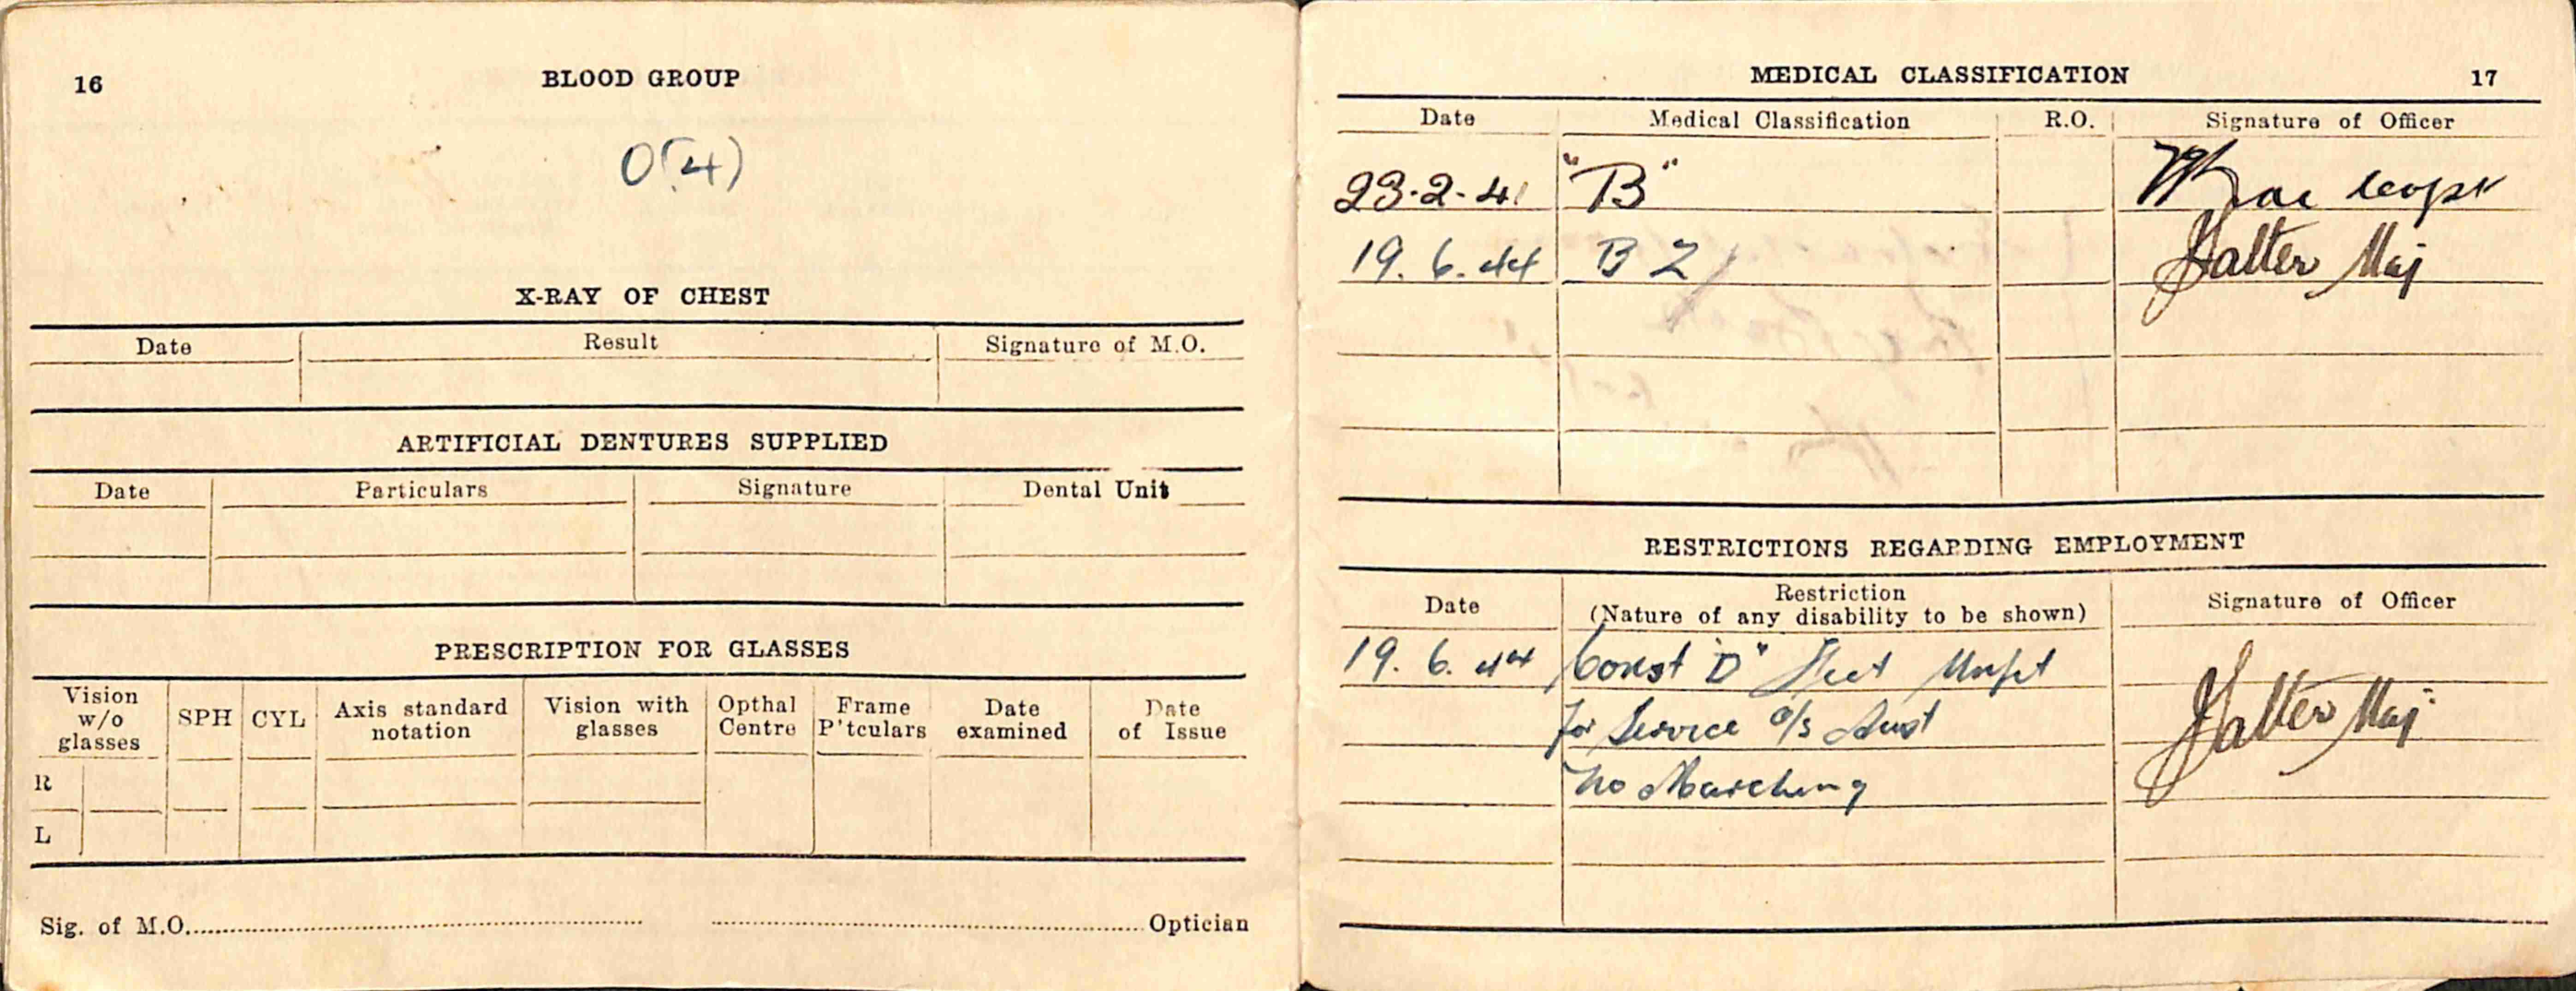 16
BLOOD GROUP
O(4)
X-RAY OF CHEST
Date Result Signature of M.O.
ARTIFICIAL DENTURES SUPPLIED
Date Particulars Signature Dental Unit
PRESCRIPTION FOR GLASSES
Vision w/o glasses SPH CYL Axis standard notation Vision with glasses Opthal Centre Frame P'tculars Date examined Date of Issue
R
L
Sig. of M.O. Optician
MEDICAL CLASSIFICATION 17
Date Medical Classification R.O. Signature of Officer
23-2-41 "B"
19. 6. 44 B 2 Maj
RESTRICTIONS REGARDING EMPLOYMENT
Date Restriction Signature of Officer
(Nature of any disability to be shown)
19. 6. 44 Const "D" Feet Unfit
for Service o/s Aust Maj
No Marching